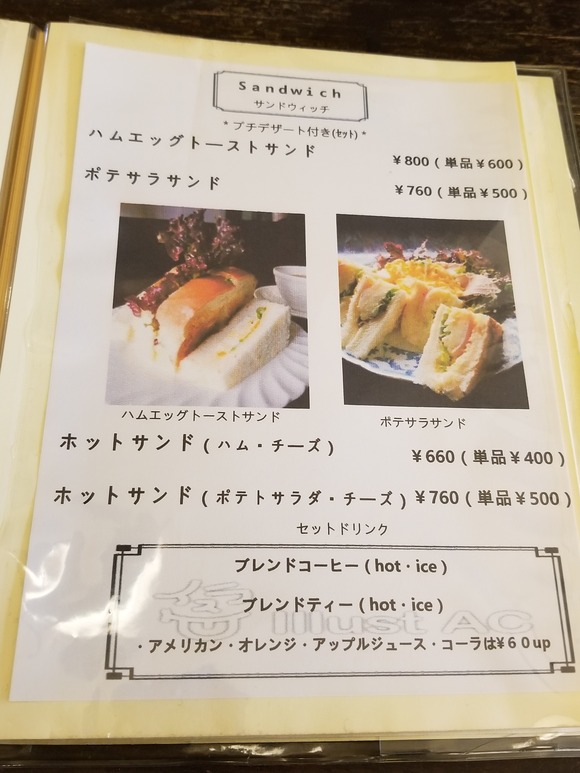 Sandwich
サンドウィッチ
*プチデザート付き(ｾｯﾄ)*
ハムエッグトーストサンド ¥800(単品¥600)
ポテサラサンド ¥760(単品¥500)
ハムエッグトーストサンド ポテサラサンド
ホットサンド(ハム・チーズ) ¥660(単品¥400)
ホットサンド(ポテトサラダ・チーズ) ¥760(単品¥500)
セットドリンク
ブレンドコーヒー(hot・ice)
ブレンドティー(hot・ice)
Illust AC
・アメリカン・オレンジ・アップルジュース・コーラは¥６０up